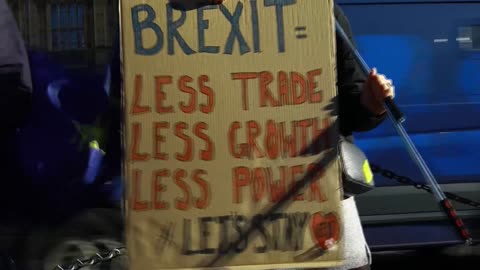 BREXIT =
LESS TRADE
LESS GROWTH
LESS POWER
#LET'S STAY